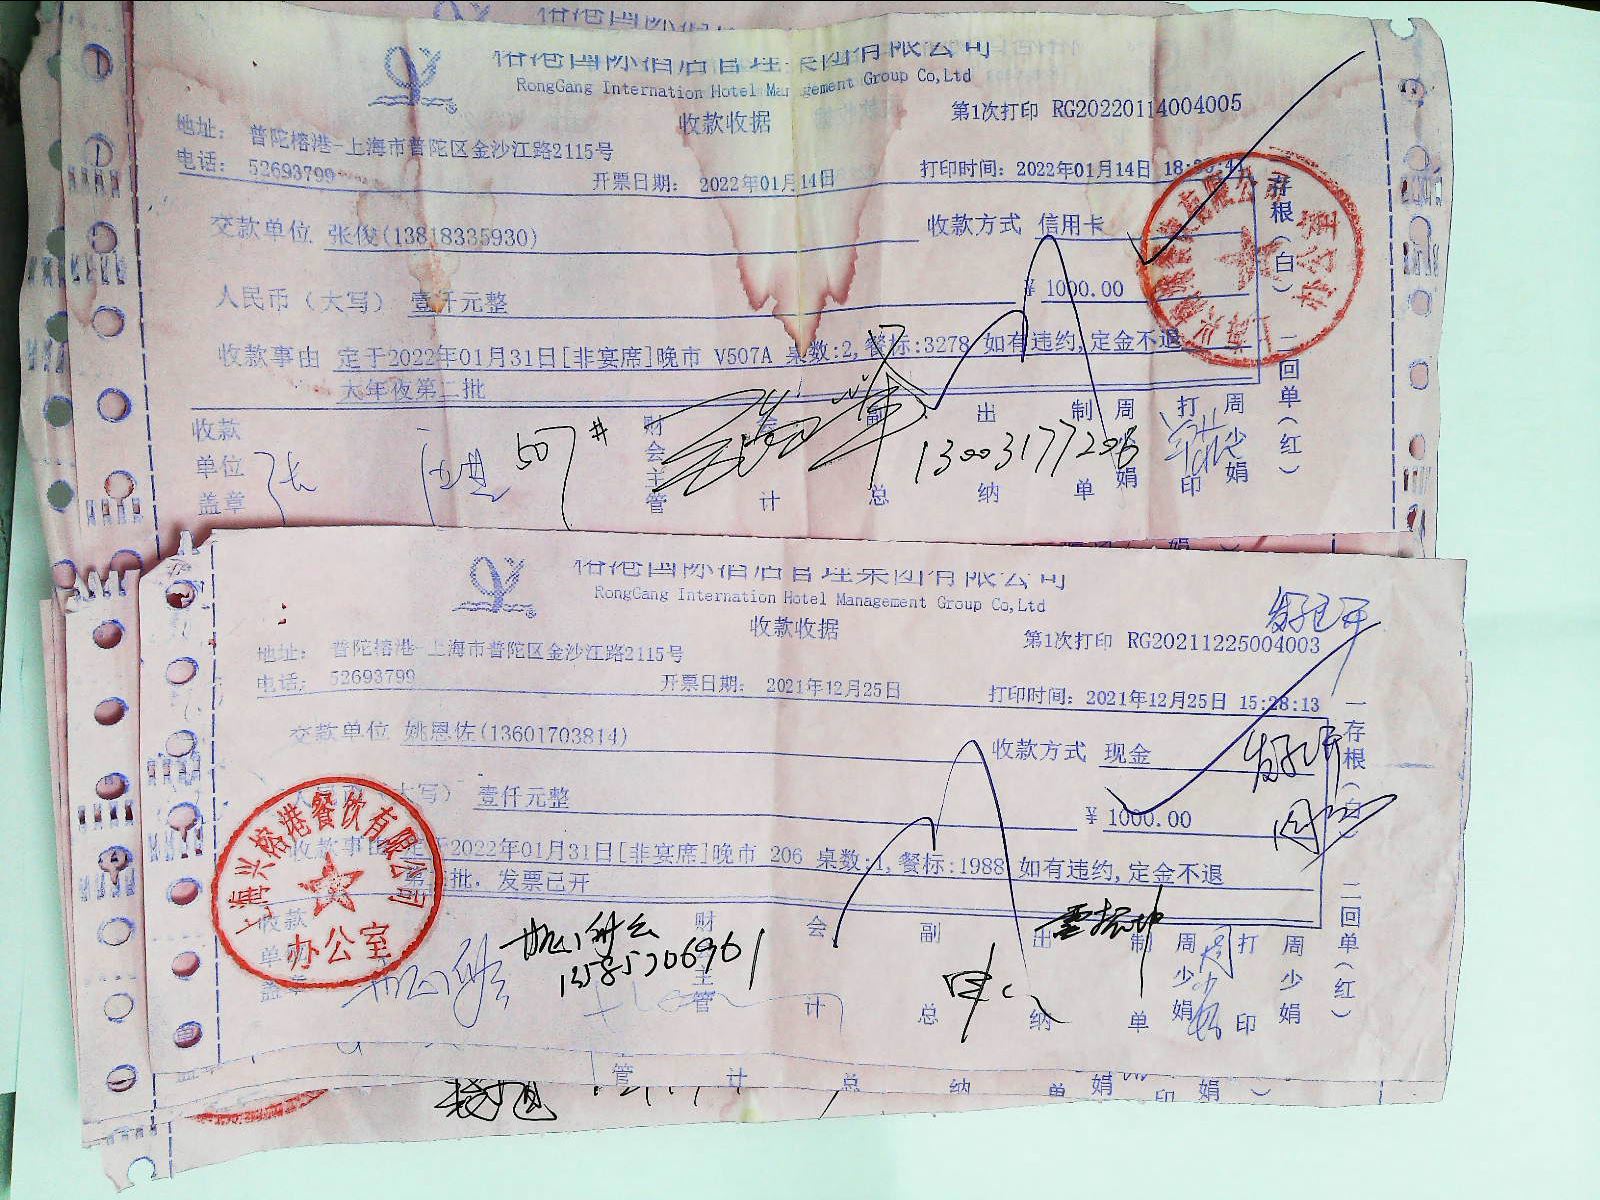 榕港国际酒店管理集团有限公司
RongGang Internation Hotel Management Group Co,Ltd
收款收据
第1次打印 RG20220114004005
地址： 普陀榕港-上海市普陀区金沙江路2115号
电话： 52693799
开票日期： 2022年01月14日
打印时间：2022年01月14日
交款单位 张俊(13818335930)
收款方式 信用卡
人民币（大写） 壹仟元整
¥ 1000.00
收款事由 定于2022年01月31日[非宴席]晚市 V507A 桌数:2,餐标:3278 如有违约,定金不退
大年夜第二批
收款单位盖章
507#
财会主管
会计
副总
出纳
13003177206
制单
周少娟
打印
周少娟
一存根（白） 二回单（红）
办公室
榕港国际酒店管理集团有限公司
RongGang Internation Hotel Management Group Co,Ltd
收款收据
第1次打印 RG20211225004003
地址： 普陀榕港-上海市普陀区金沙江路2115号
电话： 52693799
开票日期： 2021年12月25日
打印时间：2021年12月25日 15:28:13
交款单位 姚恩佐(13601703814)
收款方式 现金
人民币（大写） 壹仟元整
¥ 1000.00
收款事由 定于2022年01月31日[非宴席]晚市 206 桌数:1,餐标:1988 如有违约,定金不退
批．发票已开
上海兴榕港餐饮有限公司
办公室
收款单位盖章
13585706961
财会主管
会计
副总
出纳
制单
周少娟
打印
周少娟
一存根（白） 二回单（红）
发票已开
管 计 总 纳 单 娟 印 娟 ）